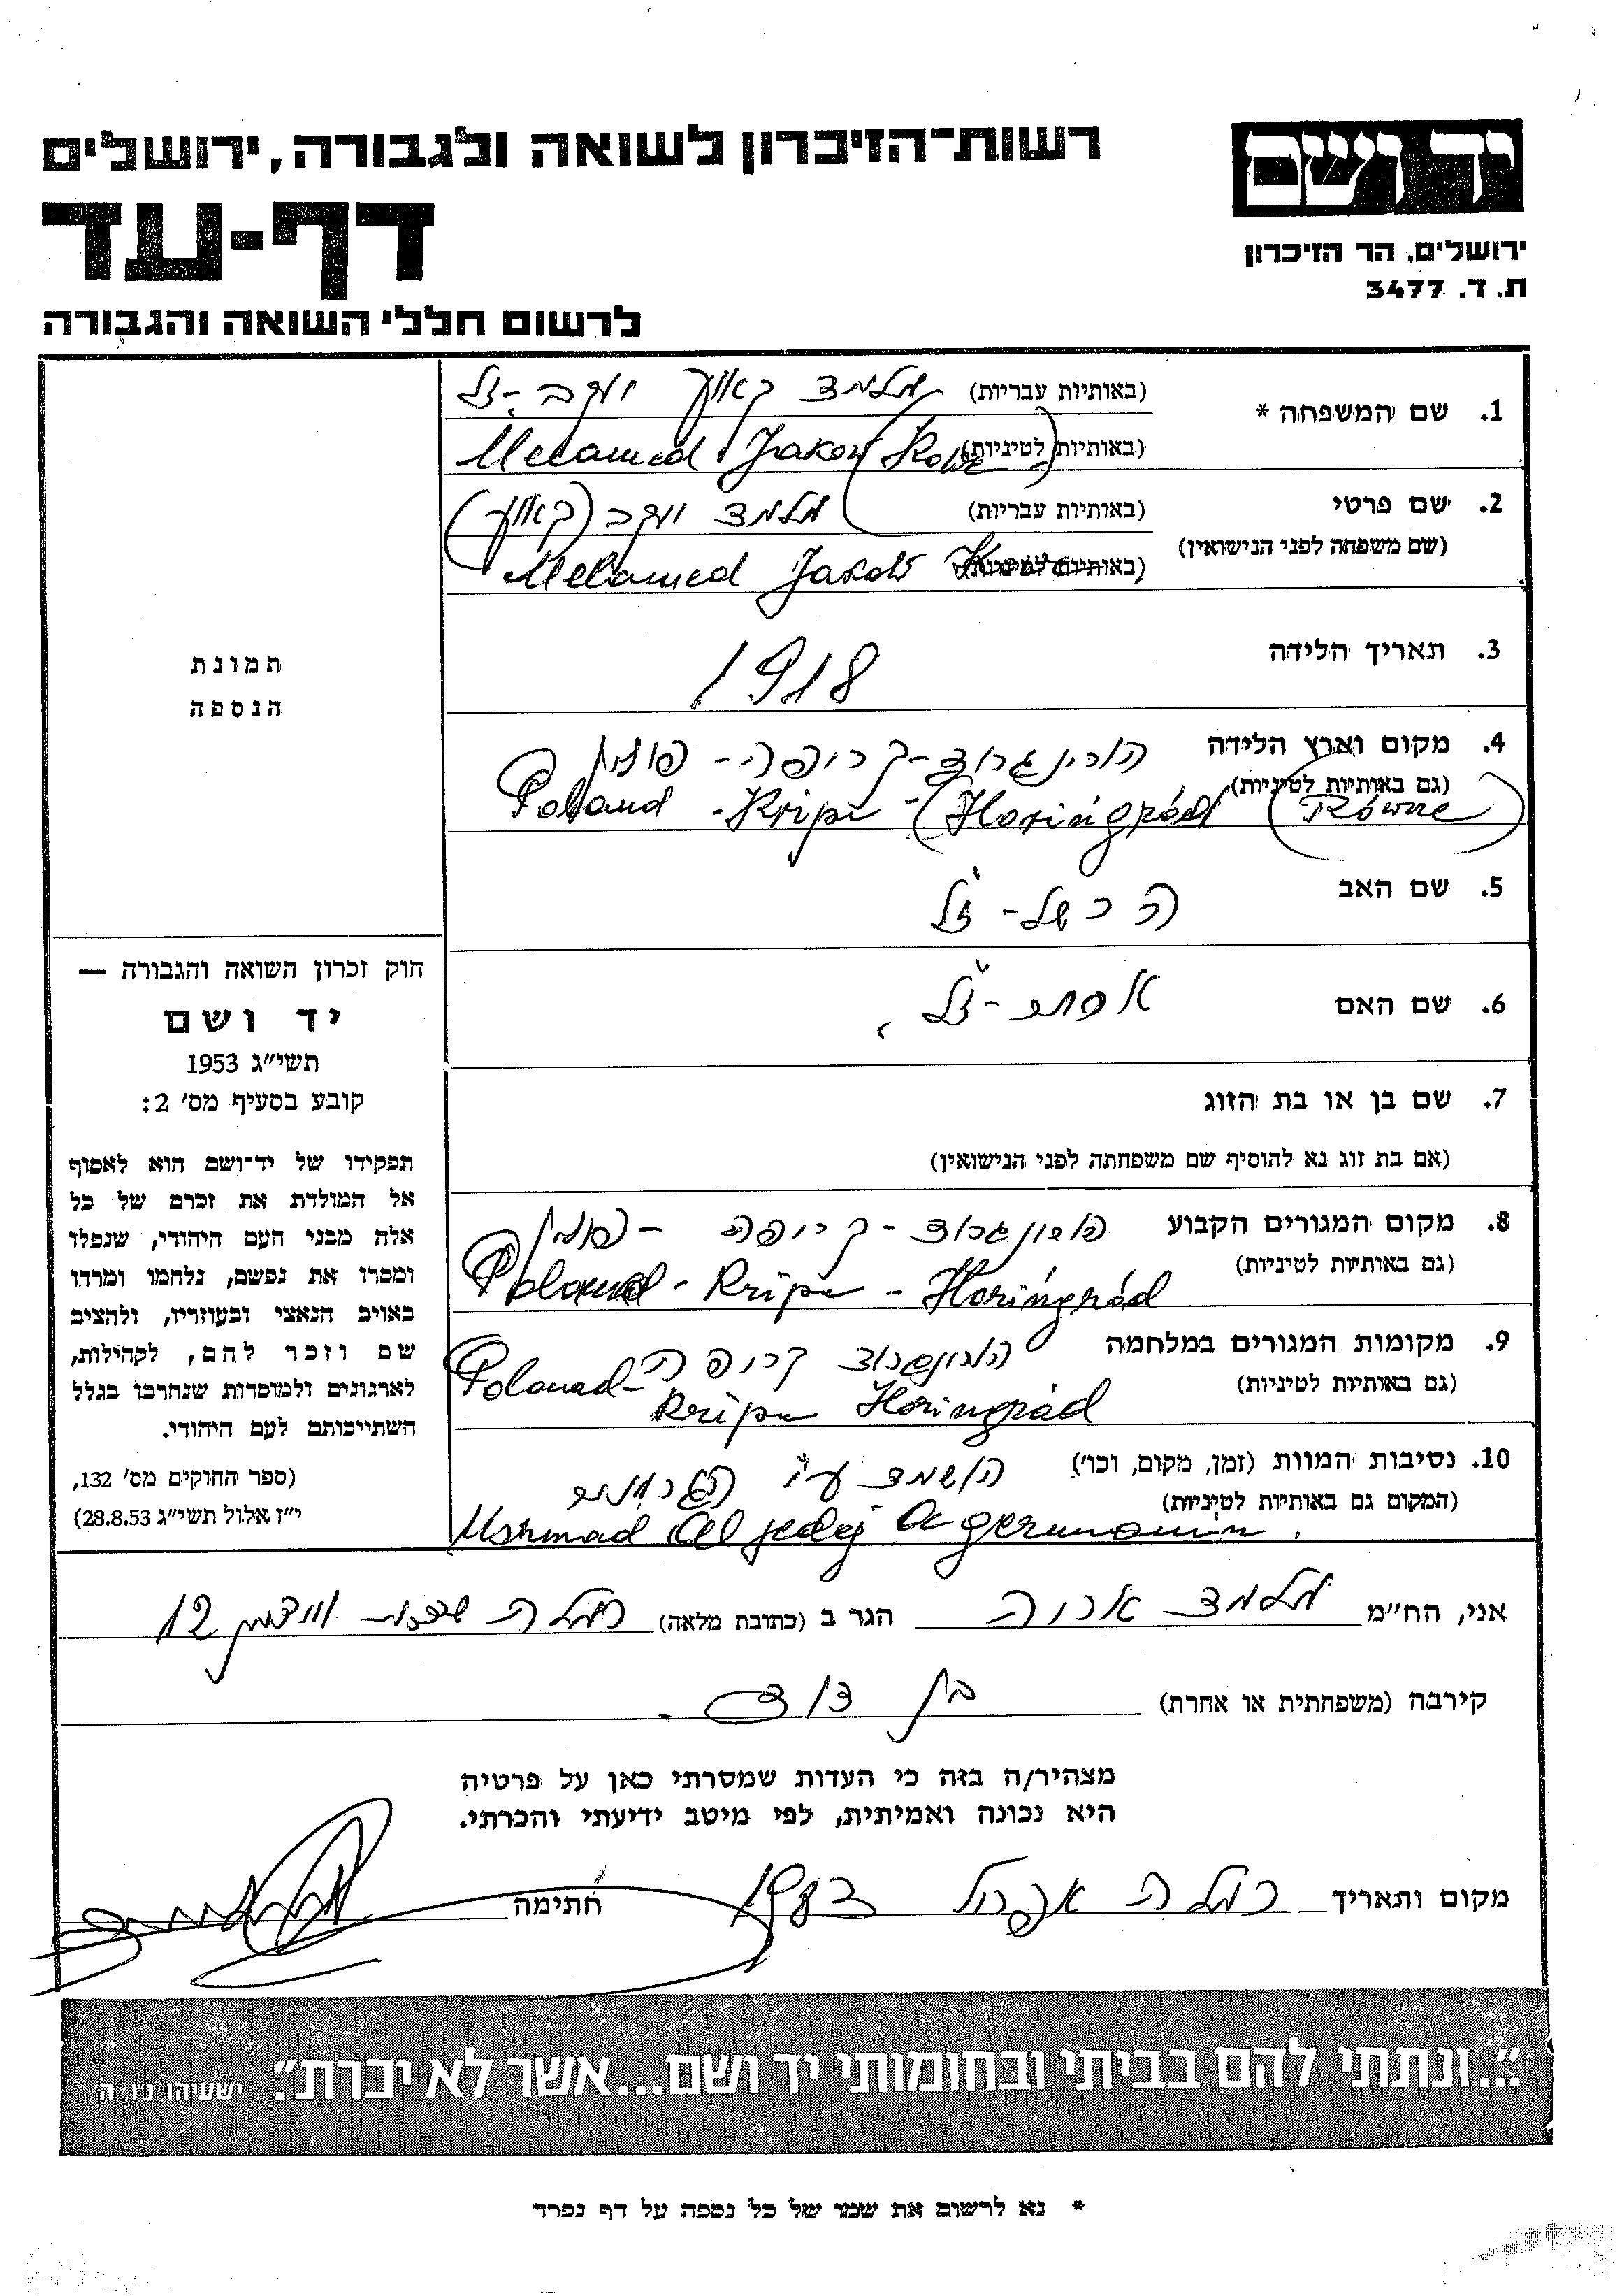 יד ושם
ירושלים, הר הזיכרון
ת. ד. 3477
רשות־הזיכרון לשואה ולגבורה, ירושלים
דף-עד
לרשום חללי השואה והגבורה
1. שם המשפחה * (באותיות עבריות) מלמד יעקב ז"ל
(באותיות לטיניות) Melamed Jakov
2. שם פרטי (באותיות עבריות) מלמד יעקב
(שם משפחה לפני הנישואין)
(באותיות לטיניות) Melamed Jakov
3. תאריך הלידה 1918
4. מקום וארץ הלידה הורינגרוד - קריפה - פולין
(גם באותיות לטיניות) Poland - Kripe - (Horingrád (Równe)
5. שם האב הכשל - ז"ל
6. שם האם אסתר - ז"ל
7. שם בן או בת הזוג
(אם בת זוג נא להוסיף שם משפחתה לפני הנישואין)
8. מקום המגורים הקבוע הורינגרוד - קריפה - פולין
(גם באותיות לטיניות) Poland - Kripe - Horingrád
9. מקומות המגורים במלחמה הורינגרוד קריפה
(גם באותיות לטיניות) Poland - Kripe Horingrád
10. נסיבות המוות (זמן, מקום, וכו') הושמד ע"י הגרמנים
(המקום גם באותיות לטיניות) Ushmad Al jedej A germanim.
תמונת
הנספה
חוק זכרון השואה והגבורה —
יד ושם
תשי״ג 1953
קובע בסעיף מס׳ 2:
תפקידו של יד־ושם הוא לאסוף
אל המולדת את זכרם של כל
אלה מבני העם היהודי, שנפלו
ומסרו את נפשם, נלחמו ומרדו
באויב הנאצי ובעוזריו, ולהציב
שם וזכר להם, לקהילות,
לארגונים ולמוסדות שנחרבו בגלל
השתייכותם לעם היהודי.
(ספר החוקים מס׳ 132,
י״ז אלול תשי״ג 28.8.53)
אני, הח״מ מלמד אריה הגר ב (כתובת מלאה) רמלה 12
קירבה (משפחתית או אחרת) בן דוד.
מצהיר/ה בזה כי העדות שמסרתי כאן על פרטיה
היא נכונה ואמיתית, לפי מיטב ידיעתי והכרתי.
מקום ותאריך רמלה אפריל חתימה
"...ונתתי להם בביתי ובחומותי יד ושם...אשר לא יכרת". ישעיהו נ״ו, ה
* נא לרשום את שמו של כל נספה על דף נפרד